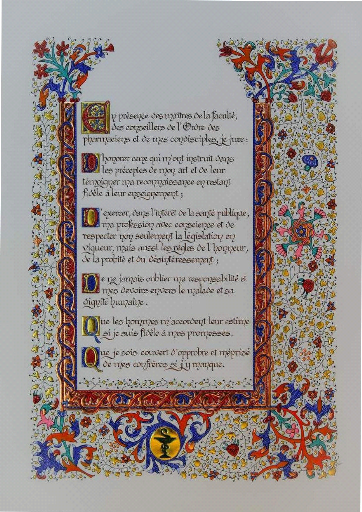 En présence des maîtres de la faculté,
des conseillers de l'Ordre des
pharmaciens et de mes condisciples, je jure :
D'honorer ceux qui m'ont instruit dans
les préceptes de mon art et de leur
témoigner ma reconnaissance en restant
fidèle à leur enseignement ;
D'exercer, dans l'intérêt de la santé publique,
ma profession avec conscience et de
respecter non seulement la législation en
vigueur, mais aussi les règles de l'honneur,
de la probité et du désintéressement ;
De ne jamais oublier ma responsabilité et
mes devoirs envers le malade et sa
dignité humaine.
Que les hommes m'accordent leur estime
si je suis fidèle à mes promesses.
Que je sois couvert d'opprobre et méprisé
de mes confrères si j'y manque.